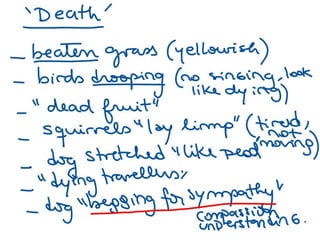 'Death'
_ beaten grass (yellowish)
_ birds drooping (no singing, look
like dying)
_ "dead fruit"
_ squirrels "lay limp" (tired,
not
moving)
_ dog stretched "like dead"
_ "dying travellers"
_ dog "begging for sympathy"
compassion
understanding.